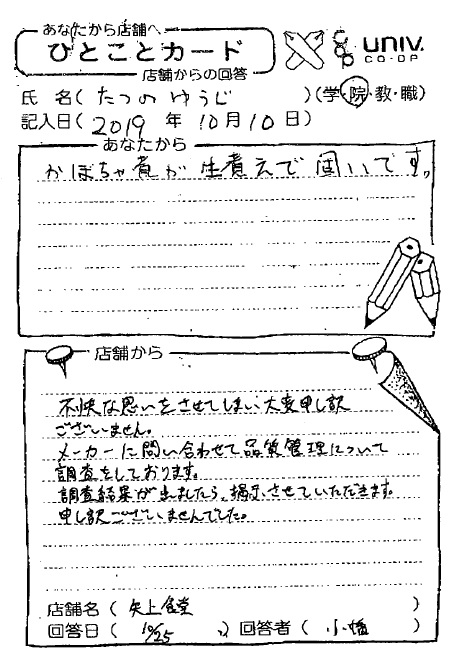 あなたから店舗へ
ひとことカード
店舗からの回答
UNIV.
CO-OP
氏 名(たつの ゆうじ)(学・院・教・職)
記入日(2019 年 10月10日)
あなたから
かぼちゃ煮が生煮えで固いです。
店舗から
不快な思いをさせてしまい大変申し訳
ございません。
メーカーに問い合わせて品質管理について
調査をしております。
調査結果が出ましたら、掲示させていただきます。
申し訳ございませんでした。
店舗名(矢上食堂)
回答日(10/25)回答者(小幡)